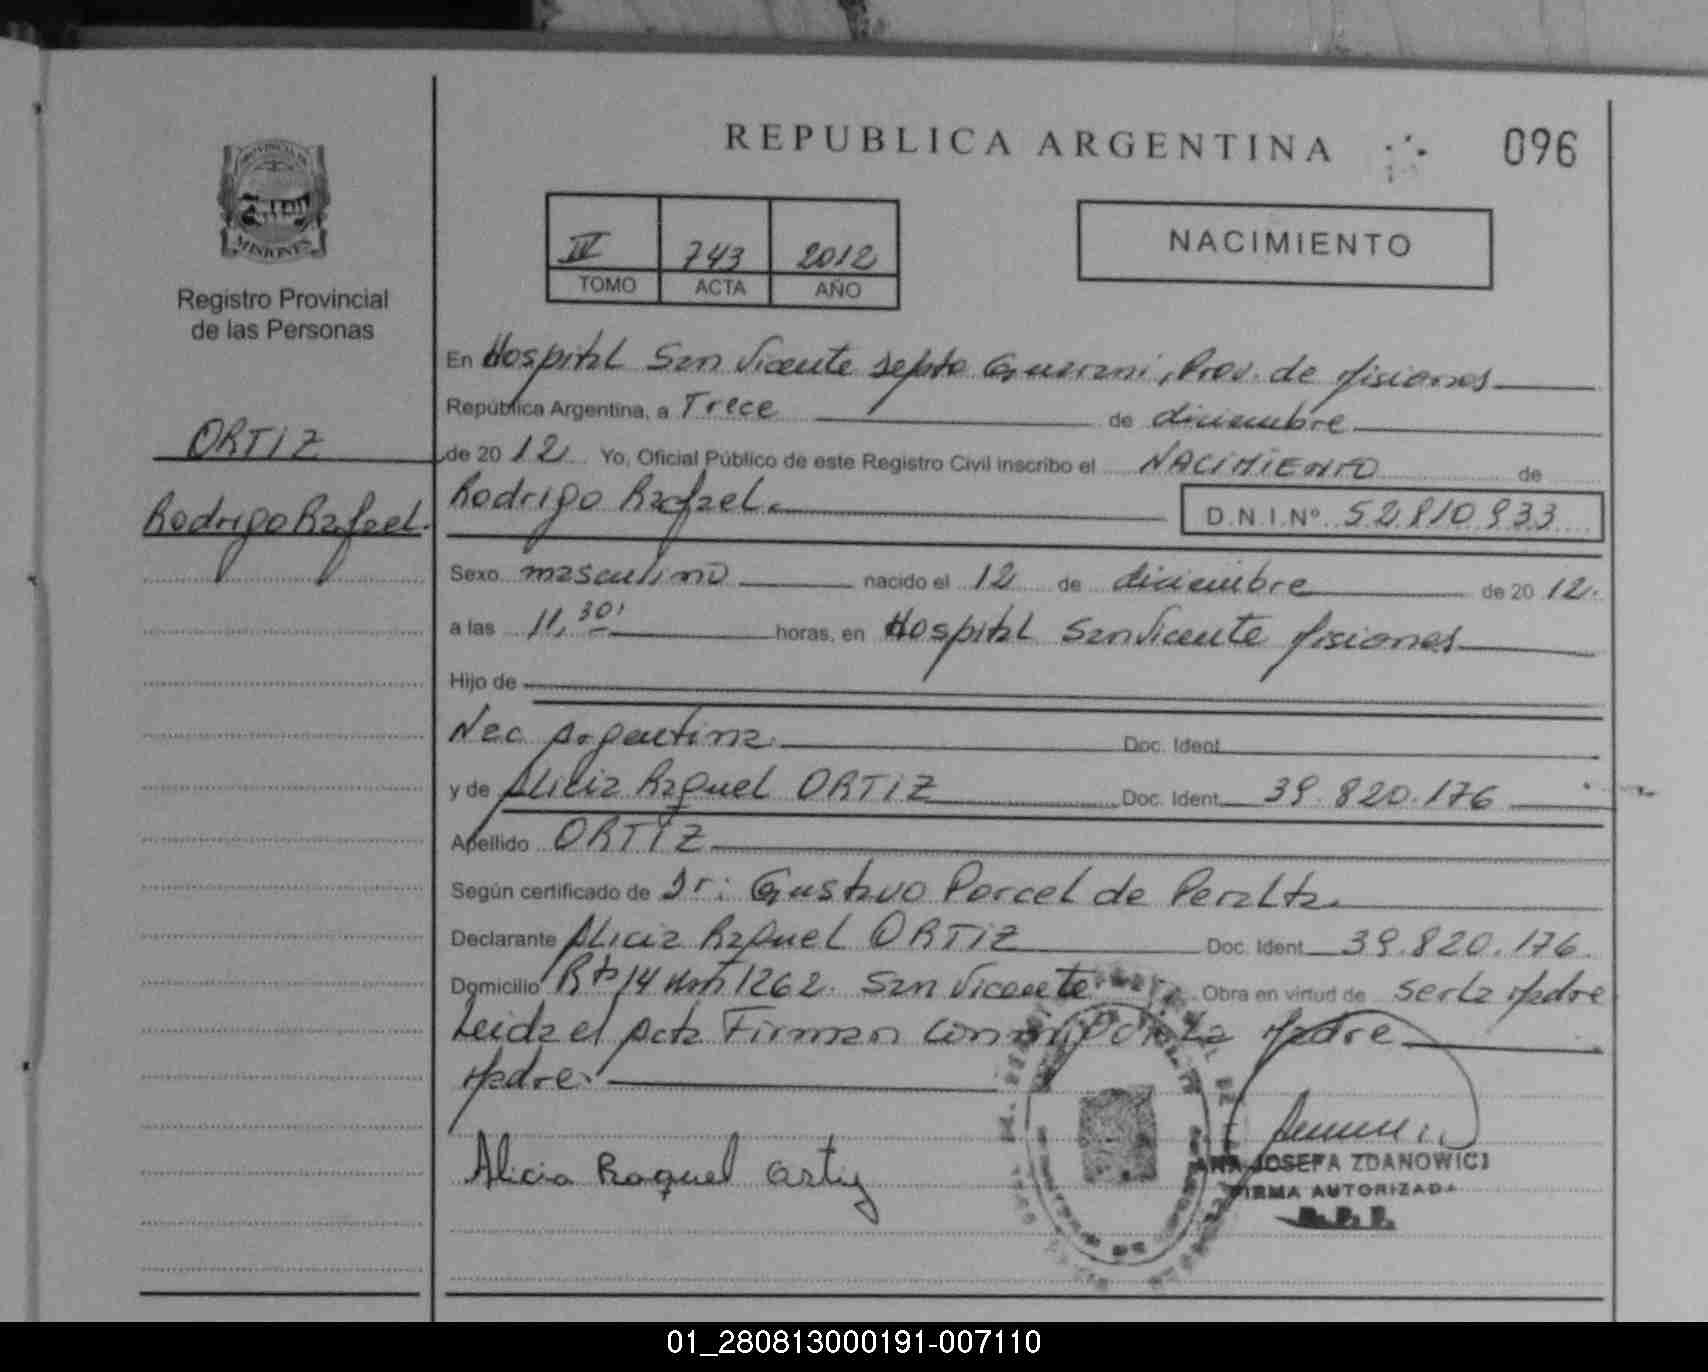 REPUBLICA ARGENTINA
096
PROVINCIA DE
MISIONES
Registro Provincial
de las Personas
IV 743 2012
TOMO ACTA AÑO
NACIMIENTO
ORTIZ
Rodrigo Rafael.
En Hospital San Vicente Depto Guarani, Prov. de Misiones
República Argentina, a Trece de diciembre
de 2012 Yo, Oficial Público de este Registro Civil inscribo el NACIMIENTO de
Rodrigo Rafael. D.N.I.Nº 52.810.933
Sexo masculino nacido el 12 de diciembre de 2012.
a las 11,30' horas, en Hospital San Vicente Misiones
Hijo de
Nac Argentina Doc. Ident.
y de Alicia Raquel ORTIZ Doc. Ident. 39.820.176
Apellido ORTIZ
Según certificado de Dr: Gustavo Porcel de Peralta.
Declarante Alicia Raquel ORTIZ Doc. Ident. 39.820.176.
Domicilio Rta 14 Km 1262. San Vicente Obra en virtud de Ser La Madre
Leida el Acta Firman Conmigo La Madre
Madre.
Alicia Raquel Ortiz
ANA JOSEFA ZDANOWICZ
FIRMA AUTORIZADA
R. P. P.
01_280813000191-007110